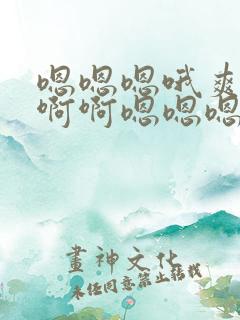 嗯嗯嗯哦爽
啊啊嗯嗯嗯
畫神文化
未经同意禁止转载